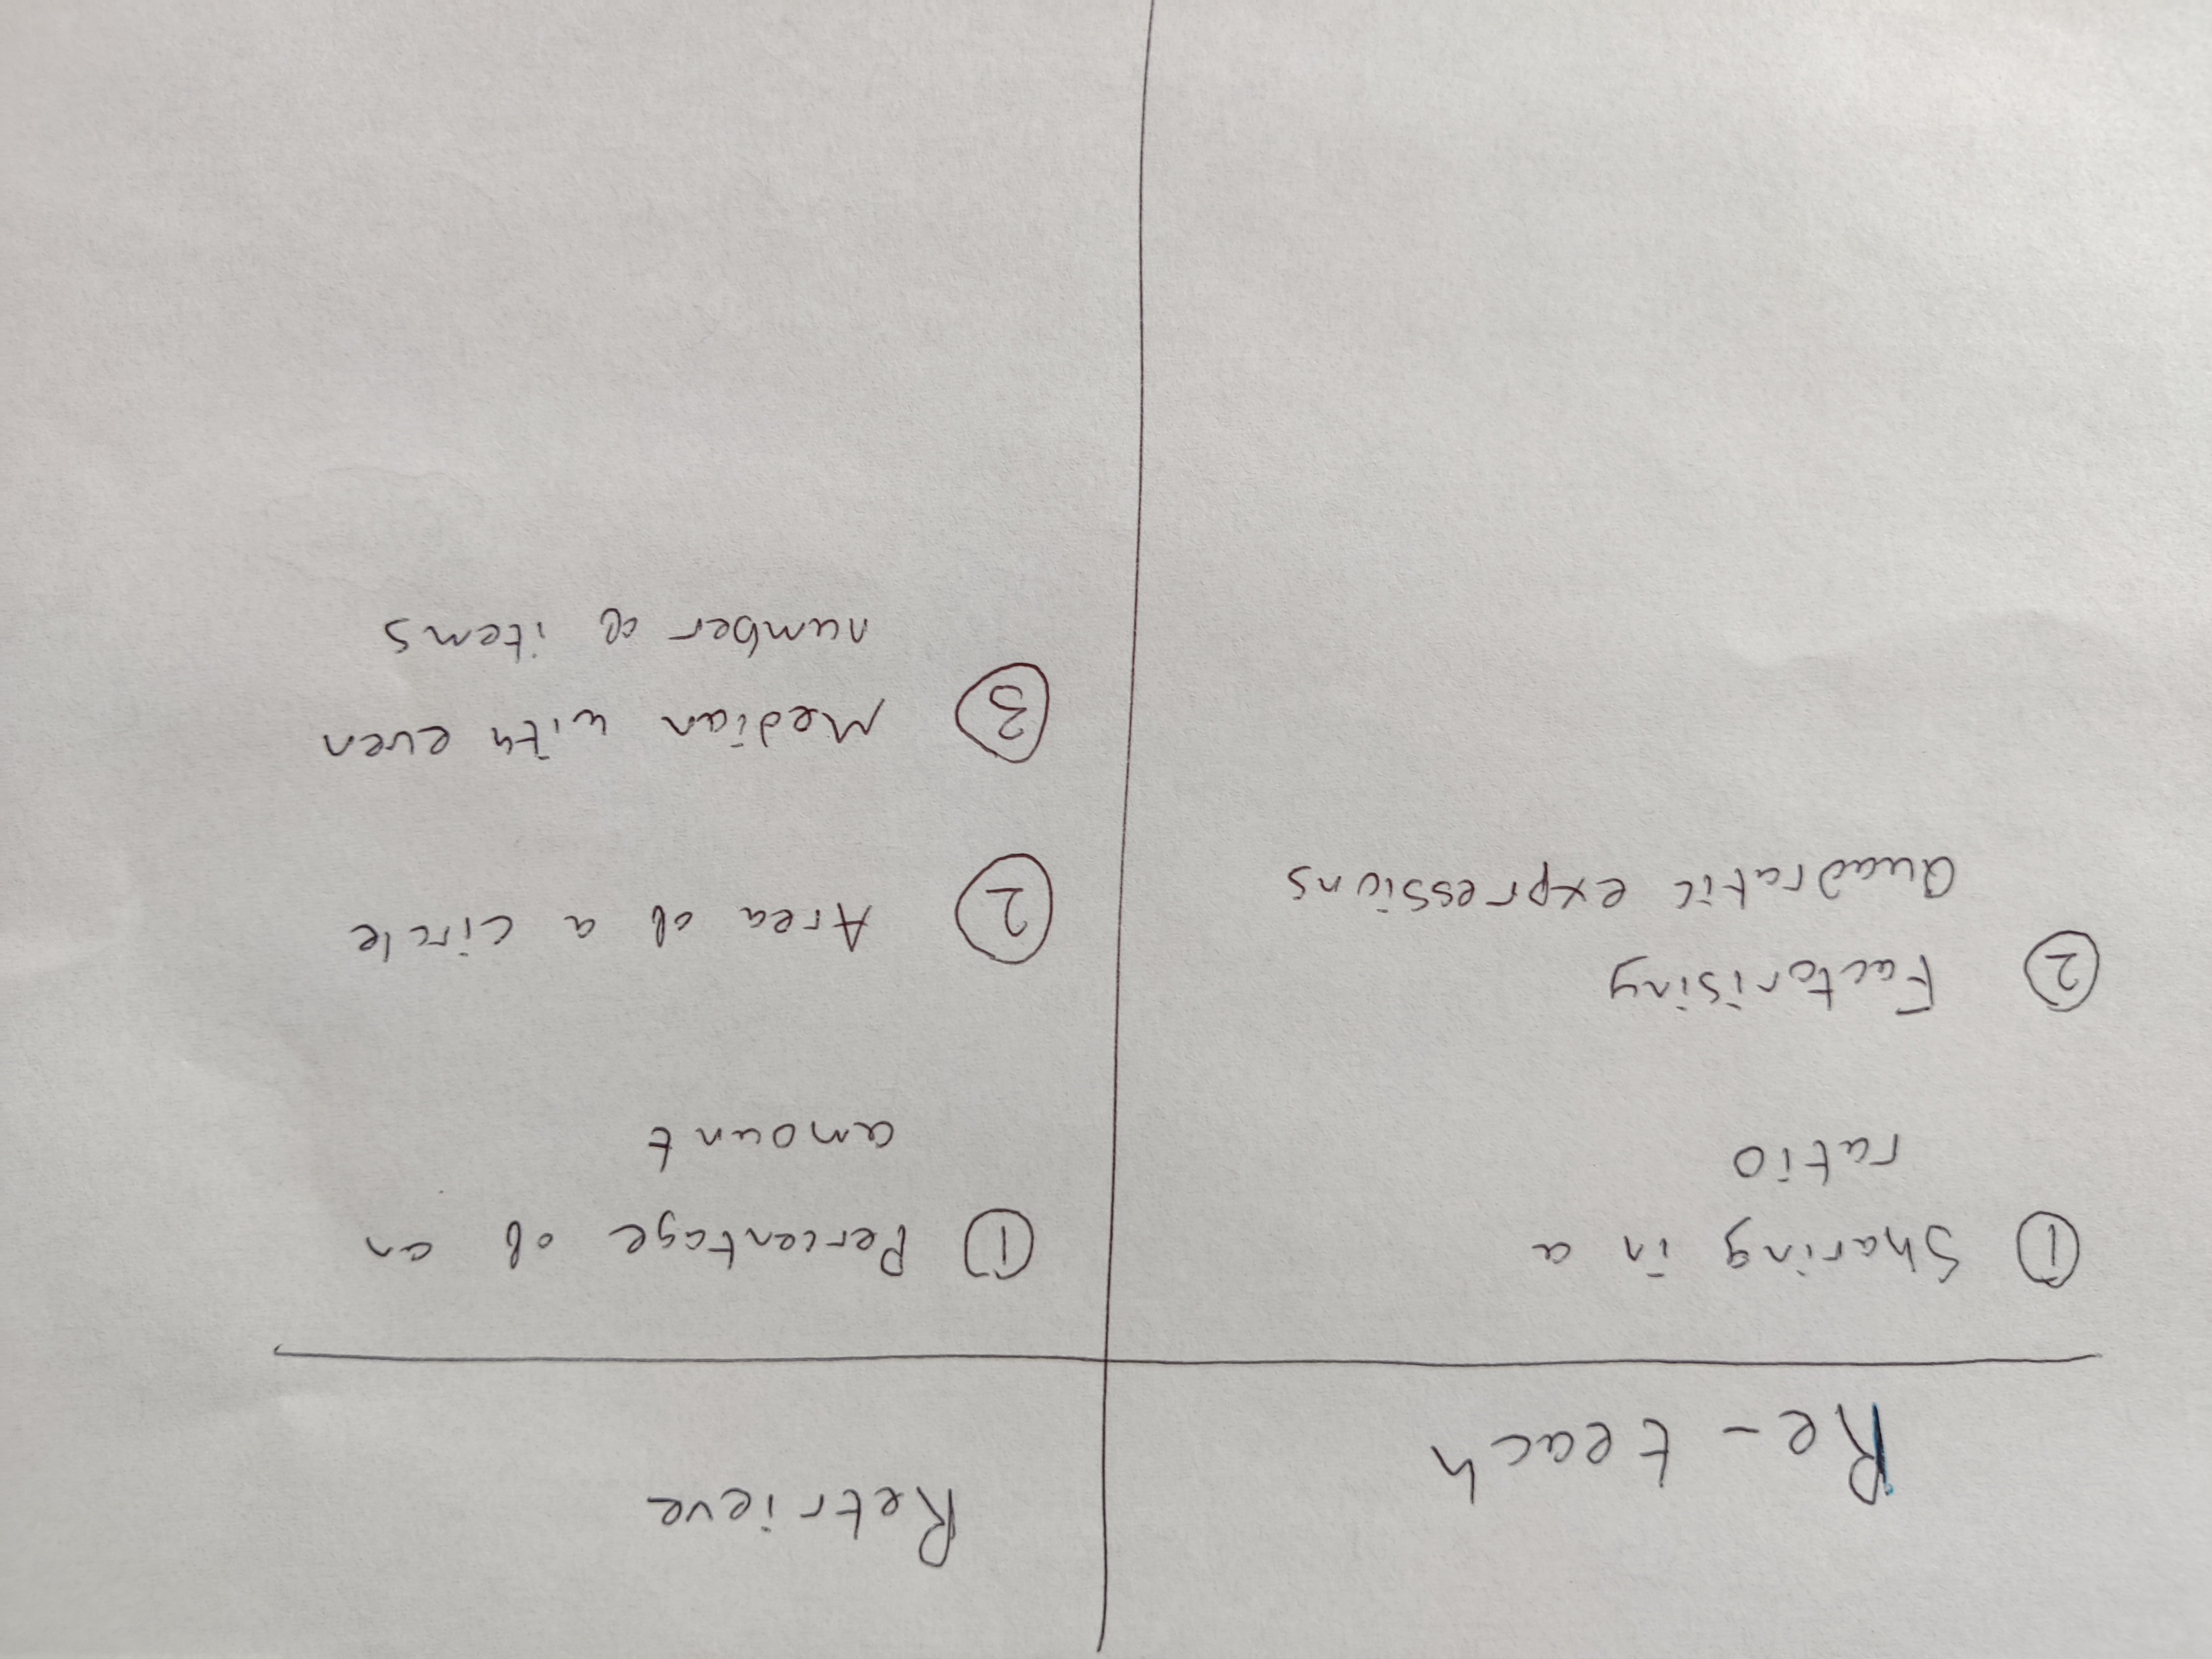 Re-teach
Retrieve
① Sharing in a
ratio
② Factorising
Quadratic expressions
① Percentage of an
amount
② Area of a circle
③ Median with even
number of items